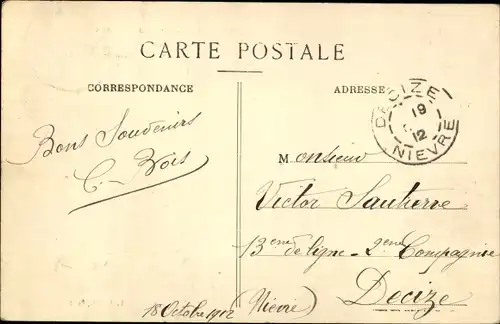 CARTE POSTALE
CORRESPONDANCE
ADRESSE
DECIZE
19
12
NIEVRE
Bons Souvenirs
C. Bois
Monsieur
Victor Sautierre
13eme de ligne - 2eme Compagnie
Decize
18 Octobre 1912 (Nièvre)